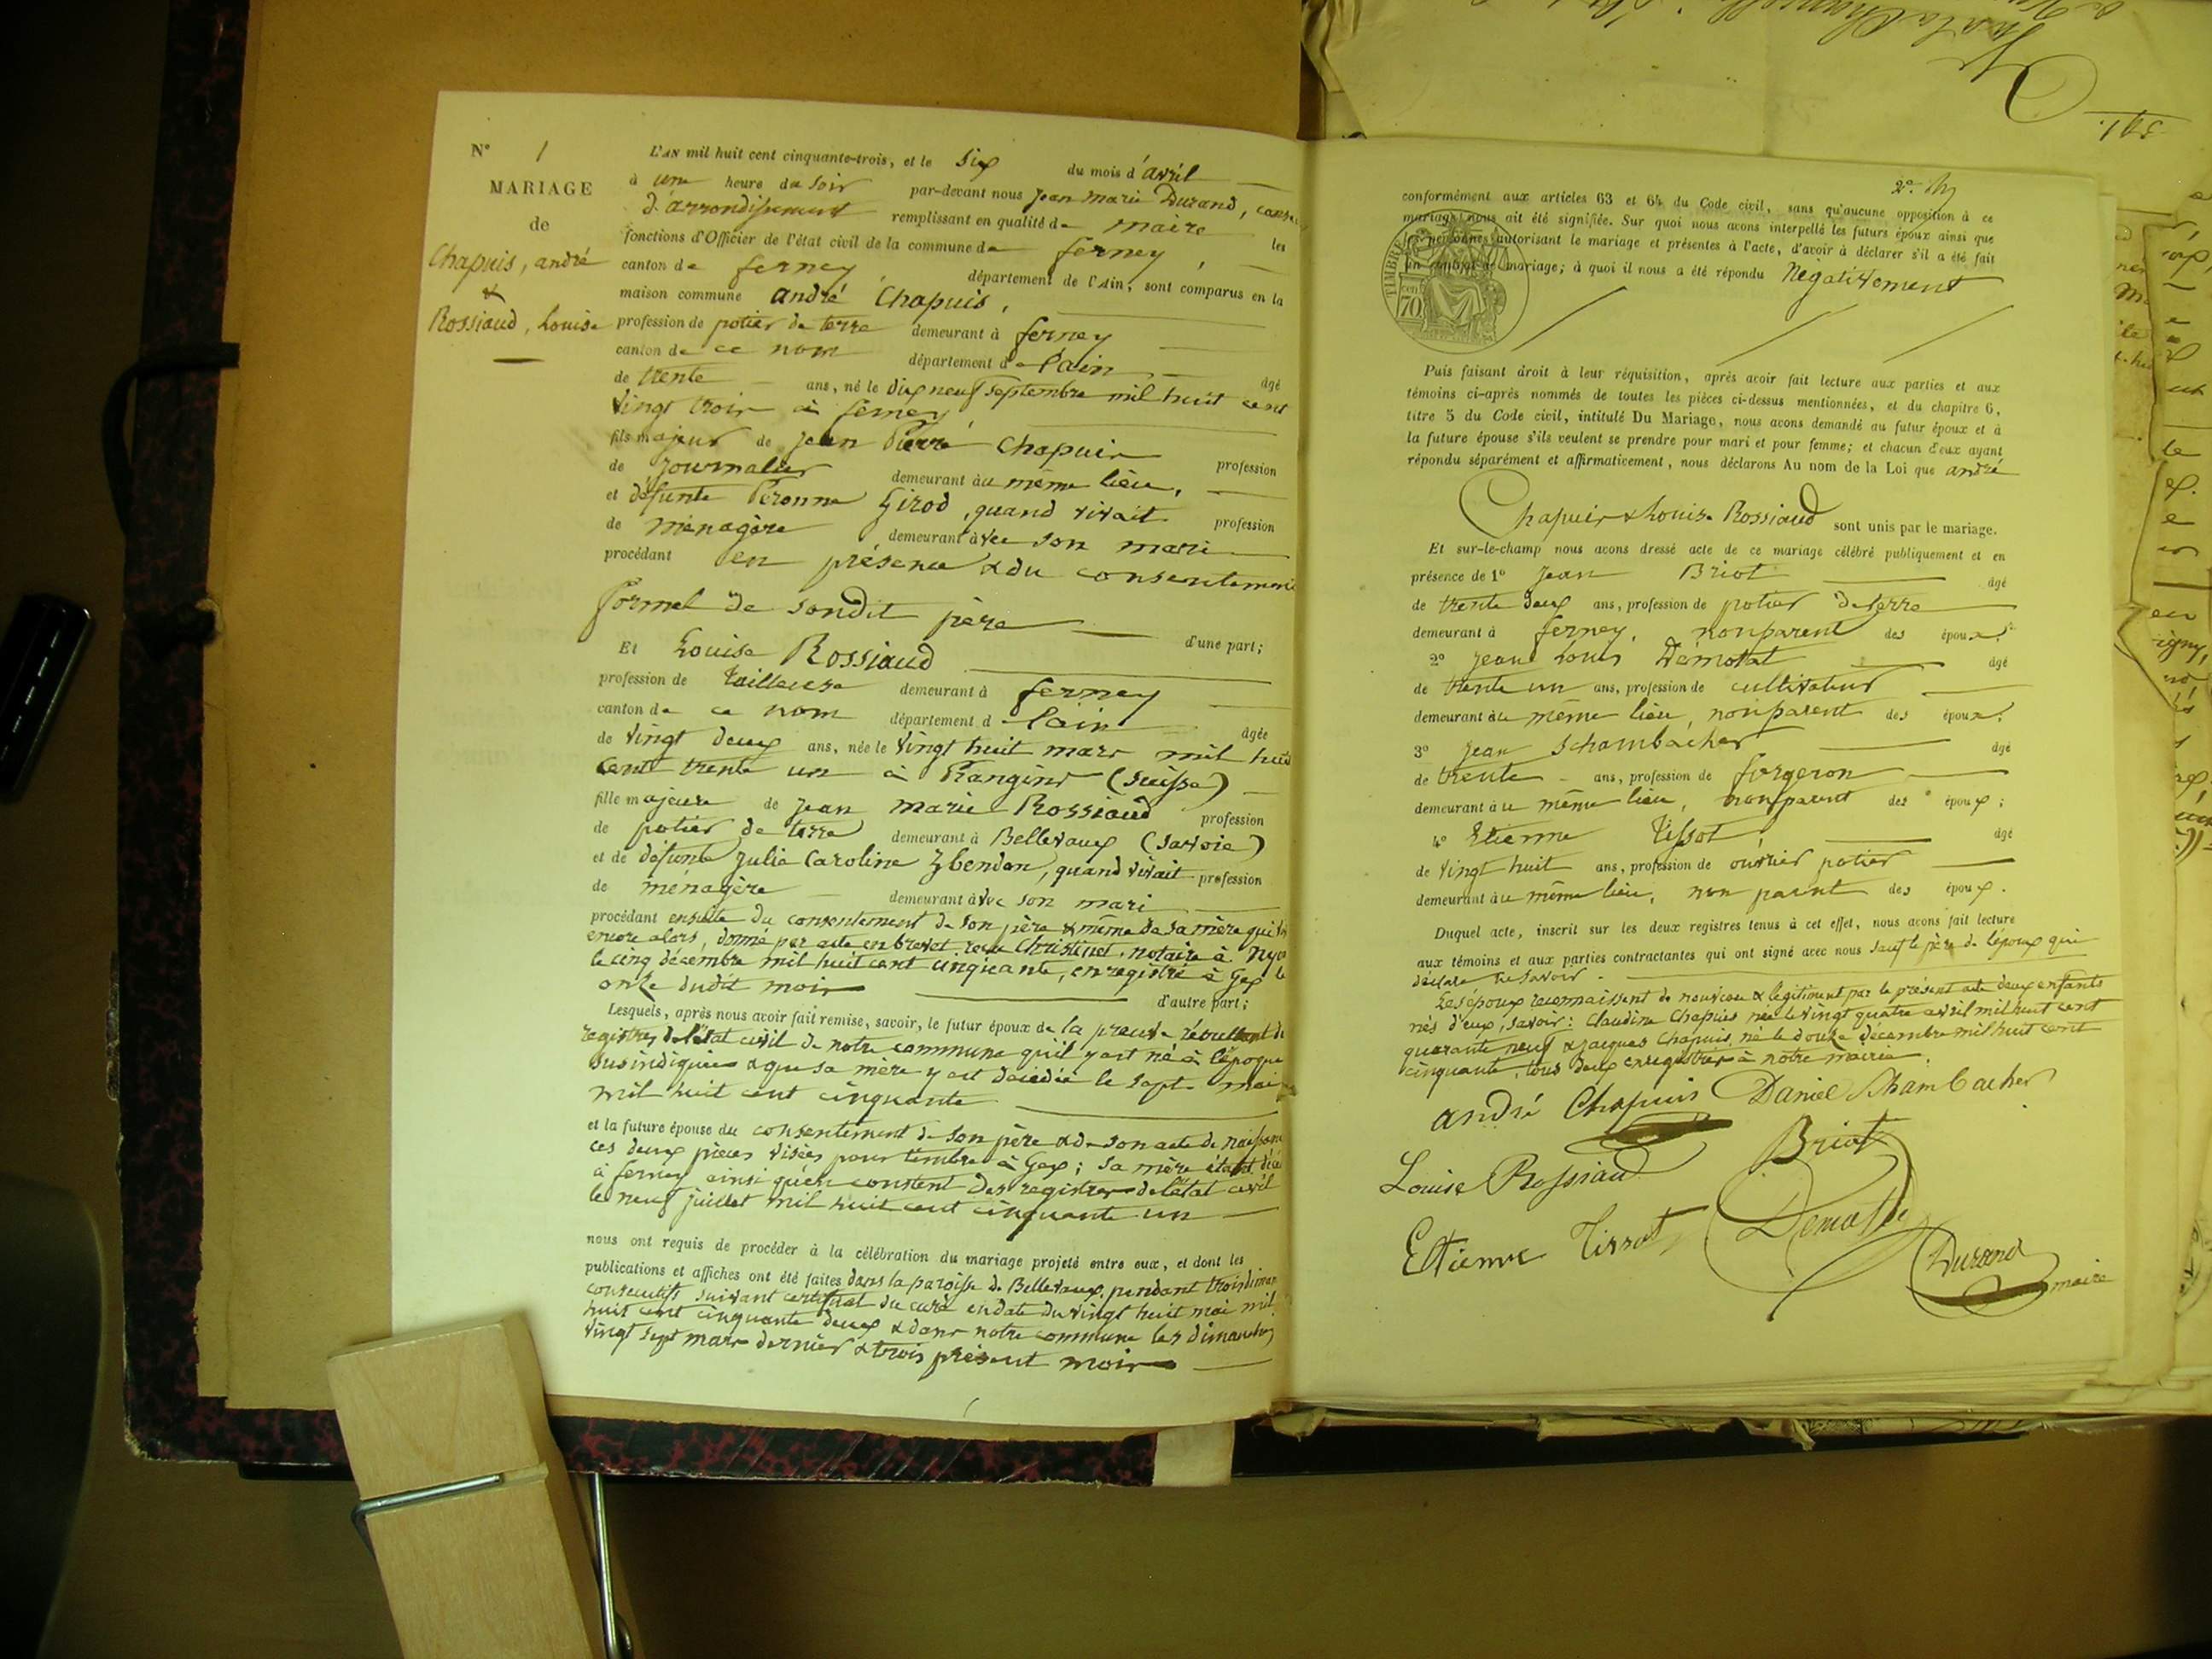 N° 1
MARIAGE
de
Chapuis, andré
&
Rossiaud, Louise
L'AN mil huit cent cinquante-trois, et le Six du mois d'avril
à une heure du soir par-devant nous Jean marie Durand,
d'arrondissement remplissant en qualité de maire les
fonctions d'Officier de l'état civil de la commune de ferney,
canton de ferney, département de l'Ain, sont comparus en la
maison commune andré Chapuis,
profession de potier de terre demeurant à ferney
canton de ce nom département de l'ain âgé
de trente ans, né le dix neuf septembre mil huit cent
vingt trois à ferney
fils majeur de jean Pierre Chapuis profession
de journalier demeurant au même lieu,
et défunte Péronne Girod, quand vivait profession
de ménagère demeurant avec son mari
procédant en présence & du consentement
formel de sondit père d'une part;
Et Louise Rossiaud
profession de tailleuse demeurant à ferney
canton de ce nom département de l'ain âgée
de vingt deux ans, née le vingt huit mars mil huit
cent trente un à Prangins (suisse)
fille majeure de jean marie Rossiaud profession
de potier de terre demeurant à Bellevaux (Savoie)
et de défunte Julie Caroline Zbenden, quand vivait profession
de ménagère demeurant avec son mari
procédant ensuite du consentement de son père & même de sa mère qui
encore alors, donné par acte en brevet reçu Christinet, notaire à Nyon
le cinq décembre mil huit cent cinquante, enregistré à Gex le
onze dudit mois d'autre part;
Lesquels, après nous avoir fait remise, savoir, le futur époux de la preuve résultant des
registres de l'état civil de notre commune qu'il y est né à l'époque
susindiquée & que sa mère y est décédée le sept mai
mil huit cent cinquante
et la future épouse du consentement de son père & de son acte de naissance
ces deux pièces visées pour timbre à Gex; sa mère étant
à ferney ainsi qu'en constent des registres de l'état civil
le neuf juillet mil huit cent cinquante un
nous ont requis de procéder à la célébration du mariage projeté entre eux, et dont les
publications et affiches ont été faites dans la paroisse de Bellevaux, pendant trois
consécutifs suivant certificat du curé en date du vingt huit mai mil
huit cent cinquante deux & dans notre commune les dimanches
vingt sept mars dernier & trois présent mois
2e.
conformément aux articles 63 et 64 du Code civil, sans qu'aucune opposition à ce
mariage nous ait été signifiée. Sur quoi nous avons interpellé les futurs époux ainsi que
les personnes autorisant le mariage et présentes à l'acte, d'avoir à déclarer s'il a été fait
un contrat de mariage; à quoi il nous a été répondu Négativement
TIMBRE
70
Puis faisant droit à leur réquisition, après avoir fait lecture aux parties et aux
témoins ci-après nommés de toutes les pièces ci-dessus mentionnées, et du chapitre 6,
titre 5 du Code civil, intitulé Du Mariage, nous avons demandé au futur époux et à
la future épouse s'ils veulent se prendre pour mari et pour femme; et chacun d'eux ayant
répondu séparément et affirmativement, nous déclarons Au nom de la Loi que andré
Chapuis & Louise Rossiaud sont unis par le mariage.
Et sur-le-champ nous avons dressé acte de ce mariage célébré publiquement et en
présence de 1° Jean Briot âgé
de trente deux ans, profession de potier de terre
demeurant à ferney, non parent des époux;
2° Jean Louis Démotat âgé
de trente un ans, profession de cultivateur
demeurant au même lieu, non parent des époux;
3° Jean Schambacher âgé
de trente ans, profession de forgeron
demeurant au même lieu, non parent des époux;
4° Etienne Tissot âgé
de vingt huit ans, profession de ouvrier potier
demeurant au même lieu, non parent des époux.
Duquel acte, inscrit sur les deux registres tenus à cet effet, nous avons fait lecture
aux témoins et aux parties contractantes qui ont signé avec nous sauf le père de l'époux qui
déclare ne savoir.
Les époux reconnaissent de nouveau & légitiment par le présent acte deux enfants
nés d'eux, savoir: Claudine Chapuis née le vingt quatre avril mil huit cent
quarante neuf & Jacques Chapuis, né le douze décembre mil huit cent
cinquante, tous deux enregistrés à notre mairie.
andré Chapuis Daniel Schambacher
Louise Rossiaud Briot
Etienne Tissot Demotat
Durand maire